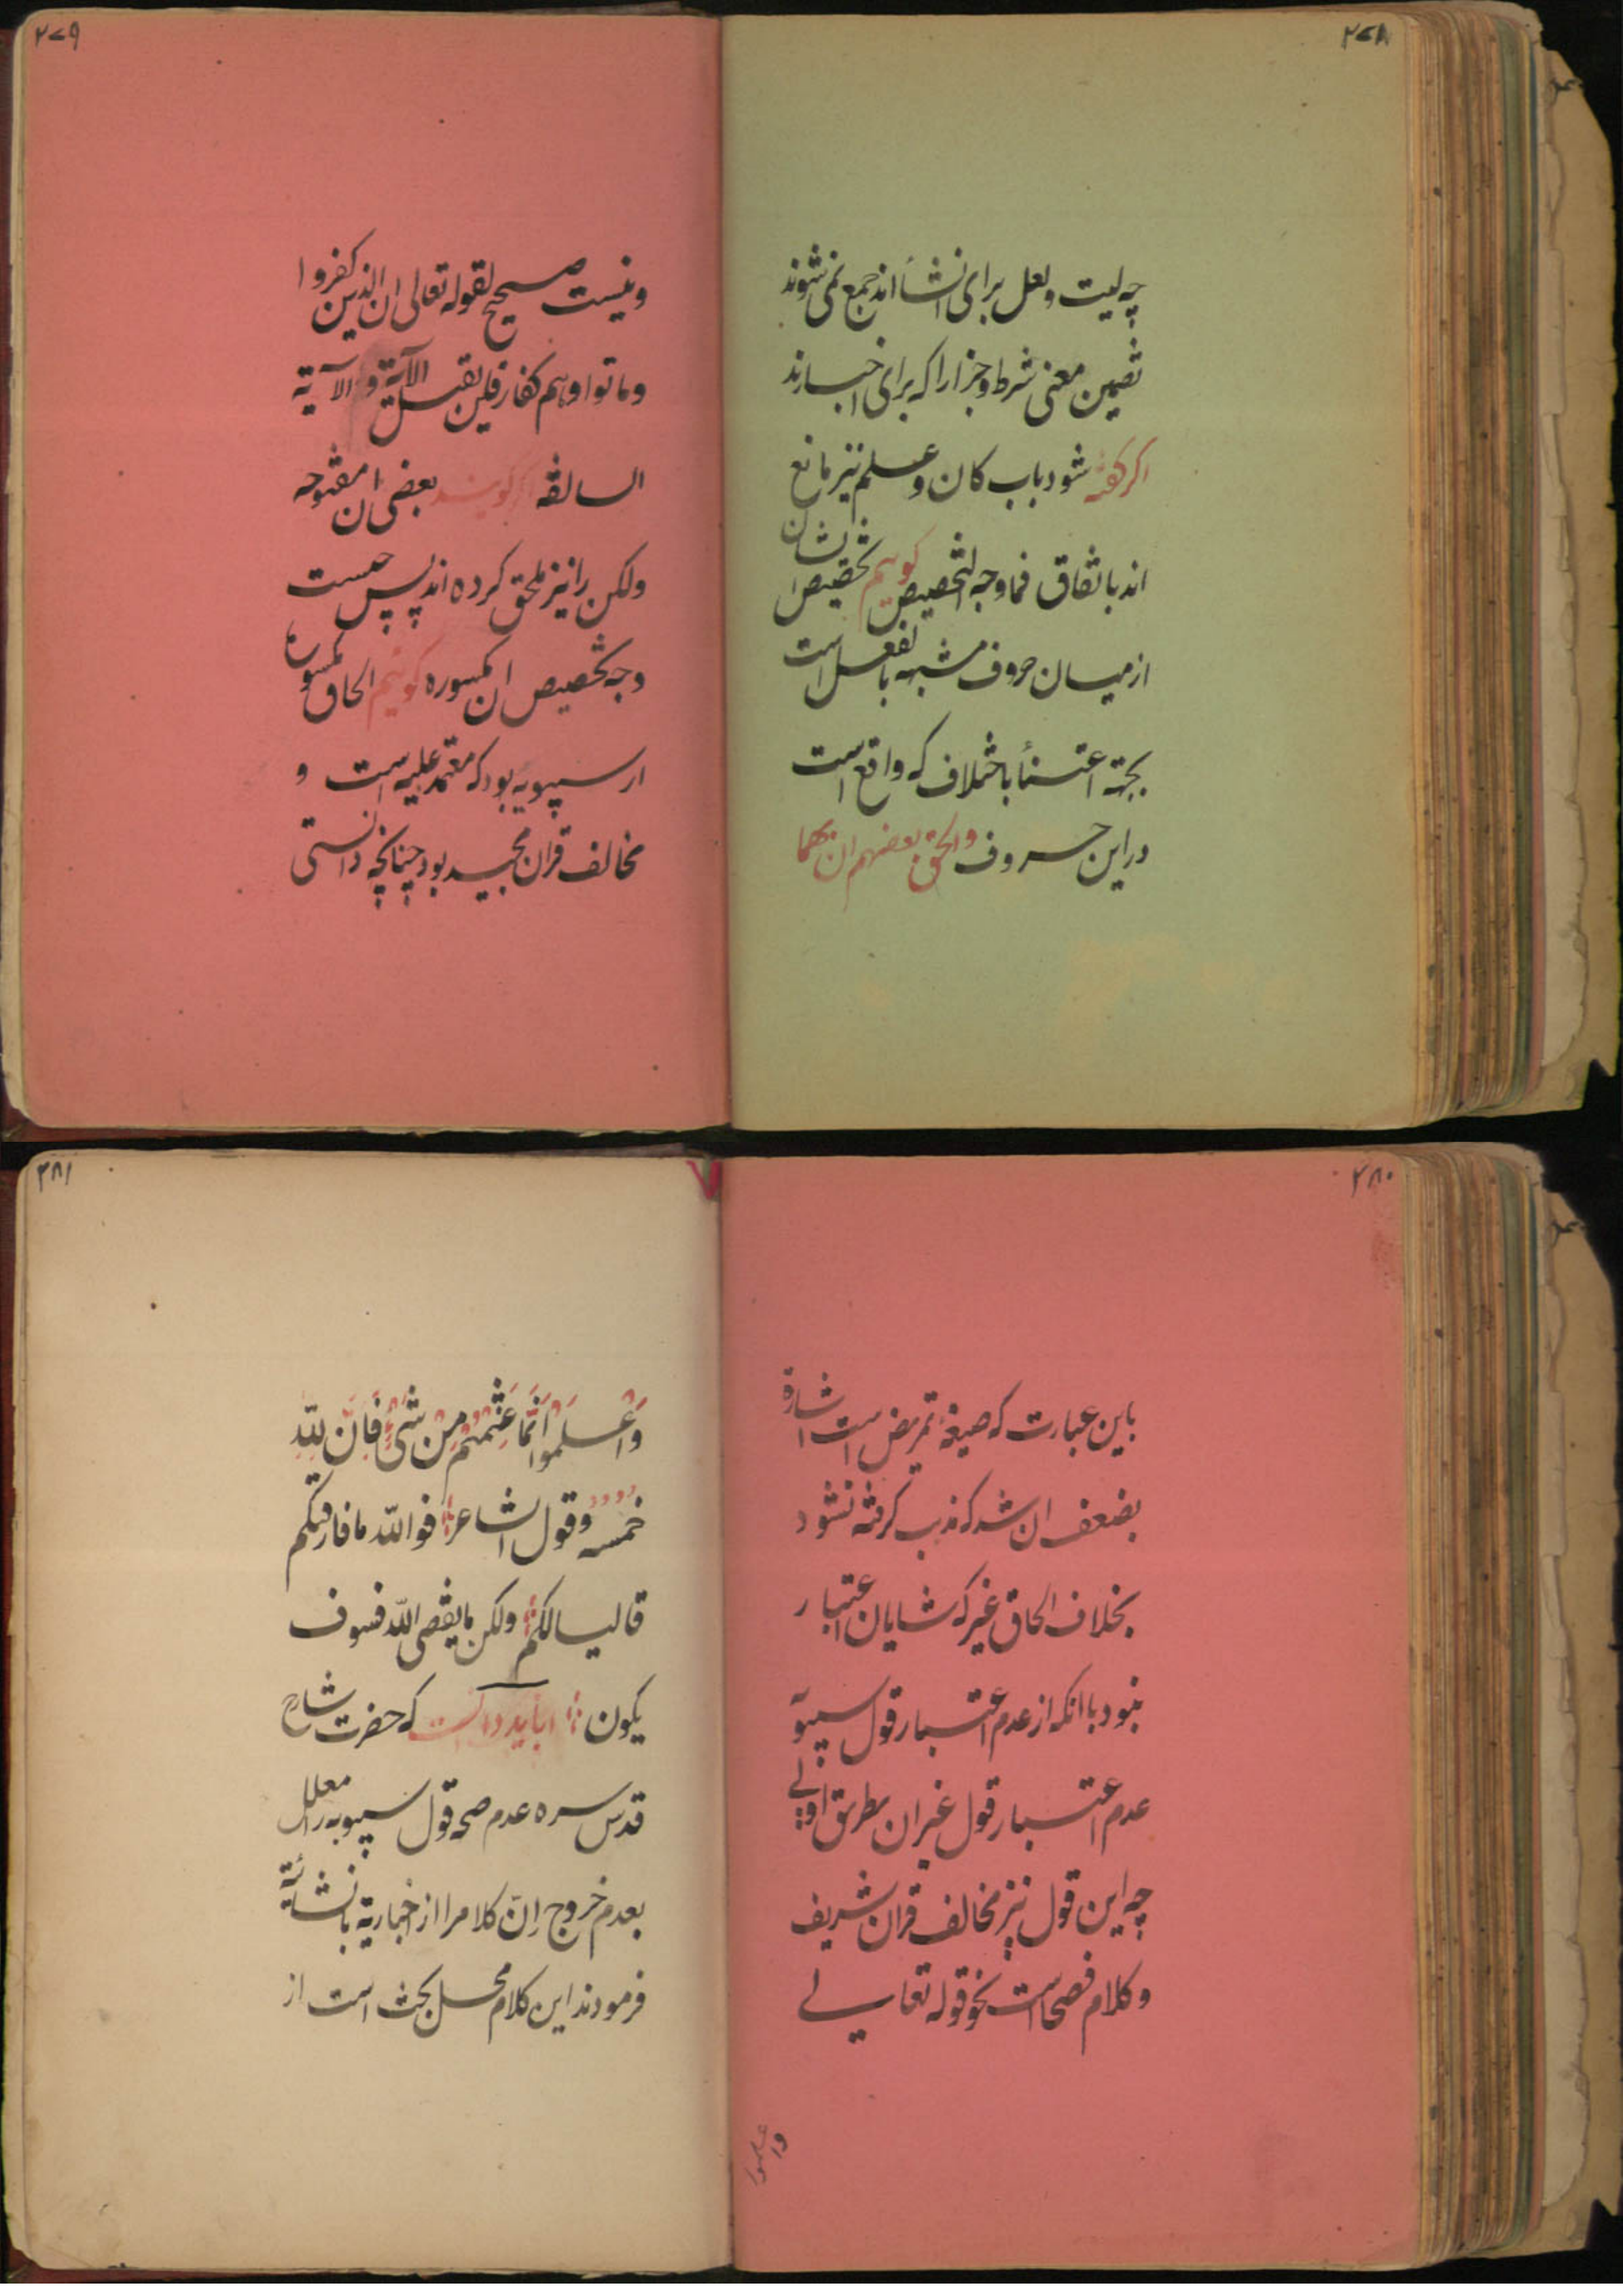 ۲۷۸
چه لیت ولعل برای انشأ اند جمع نمی شوند
تضمین معنی شرط وجزا را که برای اخبارند
اکر کفته شود باب کان وعلم نیز مانع
اند باتفاق فما وجه التخصیص کوییم تخصیص انشان
از میان حروف مشبه بالفعل است
بجهة اعتنأ باختلاف که واقع است
دراین حروف والحق بعضهم ان بهما
۲۷۹
ونیست صحیح لقوله تعالی ان الذین کفروا
وماتوا وهم کفار فلن یقبل الآیة والآیة
السالفه اکر کویند بعضی ان مفتوحه
ولکن را نیز ملحق کرده اند پس چیست
وجه تخصیص ان مکسوره کوییم الحاق مکسوره
از سیبویه بود که معتمد علیه است و
مخالف قران مجید بود چنانچه دانستی
۲۸۰
باین عبارت که صیغهٔ تمریض است اشارة
بضعف ان شد که مذهب کرفته نشود
بخلاف الحاق غیر که شایان اعتبار
نبود باانکه از عدم اعتبار قول سیبویه
عدم اعتبار قول غیران بطریق اولی
چه این قول نیز مخالف قران شریف
وکلام فصحا است نحو قوله تعالی
واعلموا
۲۸۱
وَاعْلَموا اَنَّما غَنِمْتُمْ مِنْ شَیْءٍ فَاَنَّ لِلّهِ
خمسه وقول الشاعر فوالله ما فارقتکم
قالیا لکم ولکن ما یقضی الله فسوف
یکون اما باید دانست که حضرت شارح
قدس سره عدم صحه قول سیبویه را معلل
بعدم خروج اِنّ کلام را از اخباریة بانشائیة
فرمودند این کلام محل بحث است از